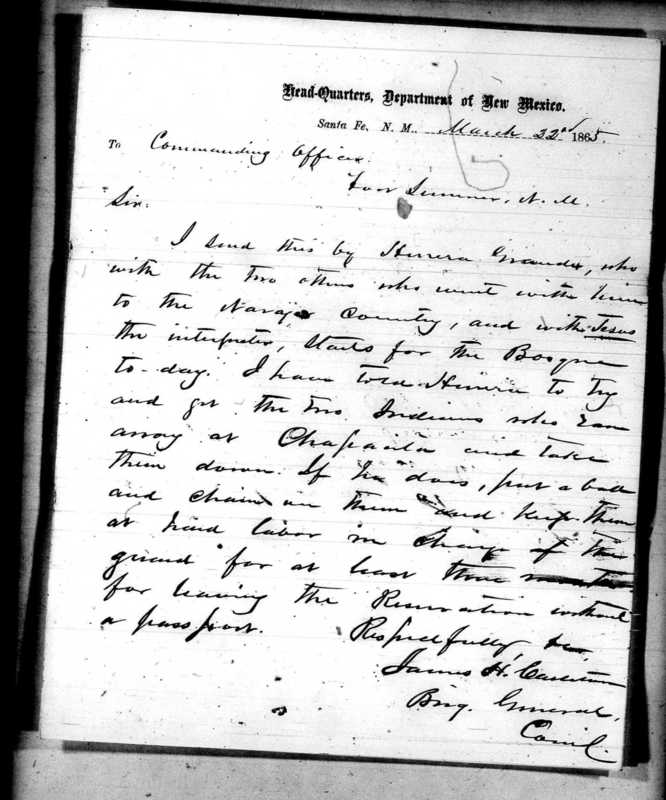 Head-Quarters, Department of New Mexico.
Santa Fe, N. M., March 22nd 1865.
To Commanding Officer
Fort Sumner, N. M.
Sir:
I send this by Herrera Grande, who
with the two others who went with him
to the Navajo Country, and with Jesus
the interpreter, starts for the Bosque
to-day. I have told Herrera to try
and get the two Indians who ran
away at Chaparita and take
them down. If he does, put a ball
and chain on them and keep them
at hard labor in charge of the
guard for at least three months
for leaving the Reservation without
a passport. Respectfully, &c,
James H. Carleton
Brig. General,
Comd.